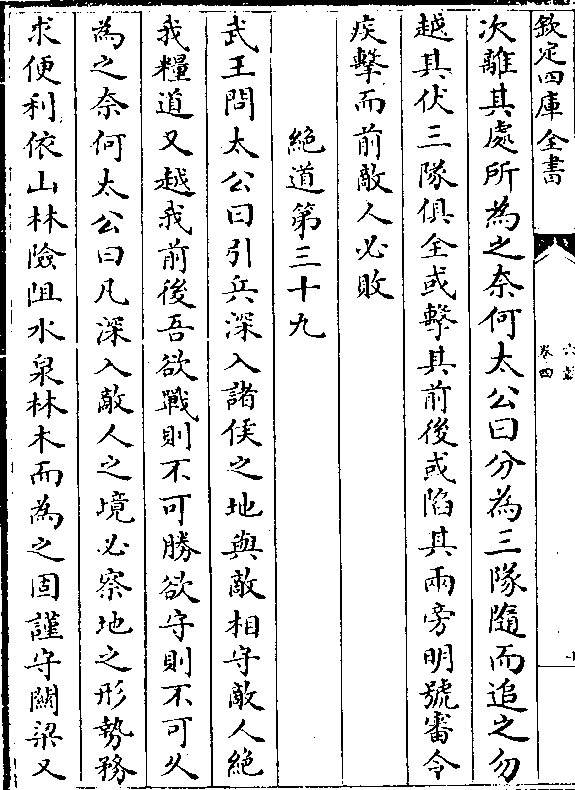 欽定四庫全書
六韜
卷四
次離其處所為之奈何太公曰分為三隊隨而追之勿
越其伏三隊俱全或擊其前後或陷其兩旁明號審令
疾擊而前敵人必敗
絶道第三十九
武王問太公曰引兵深入諸侯之地與敵相守敵人絶
我糧道又越我前後吾欲戰則不可勝欲守則不可久
為之奈何太公曰凡深入敵人之境必察地之形勢務
求便利依山林險阻水泉林木而為之固謹守關梁又